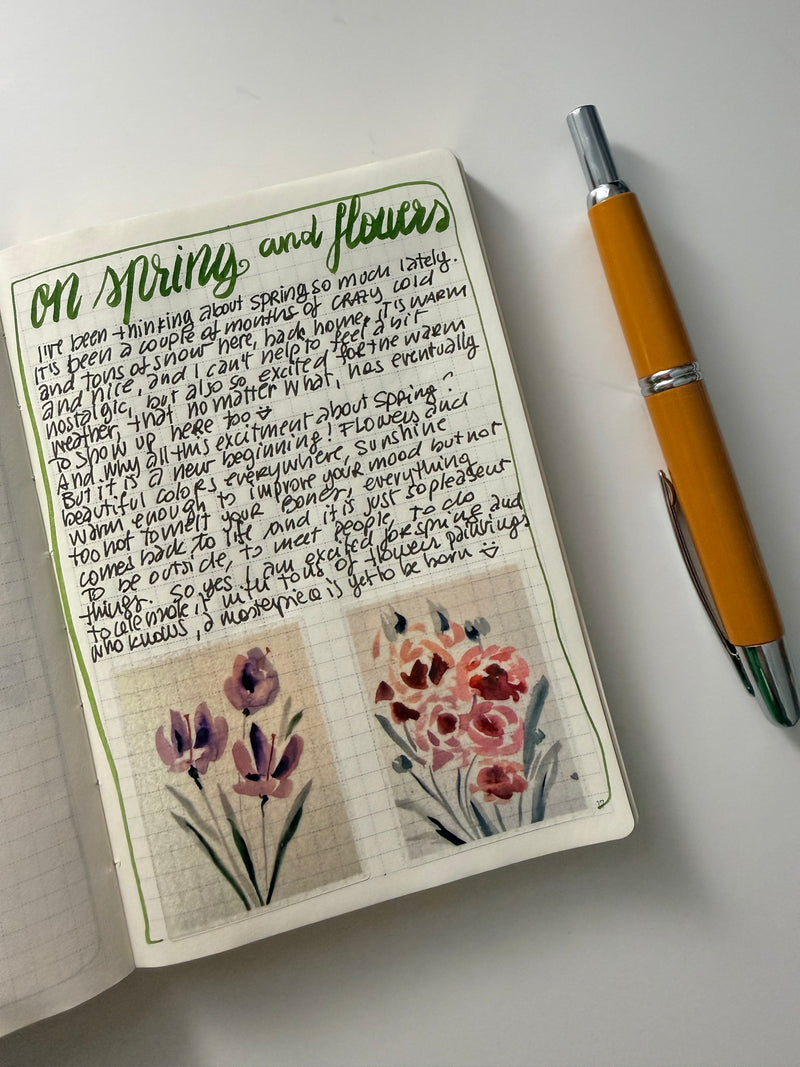 on spring and flowers
I've been thinking about spring so much lately.
It's been a couple of months of CRAZY cold
and tons of snow here, back home, it is warm
and nice, and I can't help to feel a bit
nostalgic, but also so excited for the warm
weather, that no matter what, has eventually
to show up here too
And why all this excitment about spring?
But it is a new beginning! Flowers and
beautiful colors everywhere, sunshine
warm enough to improve your mood but not
too hot to melt your bones, everything
comes back to life and it is just so pleasent
to be outside, to meet people, to do
things. So yes, I am excited for spring and
to celebrate it with tons of flowers paintings
who knows, a masterpiece is yet to be born